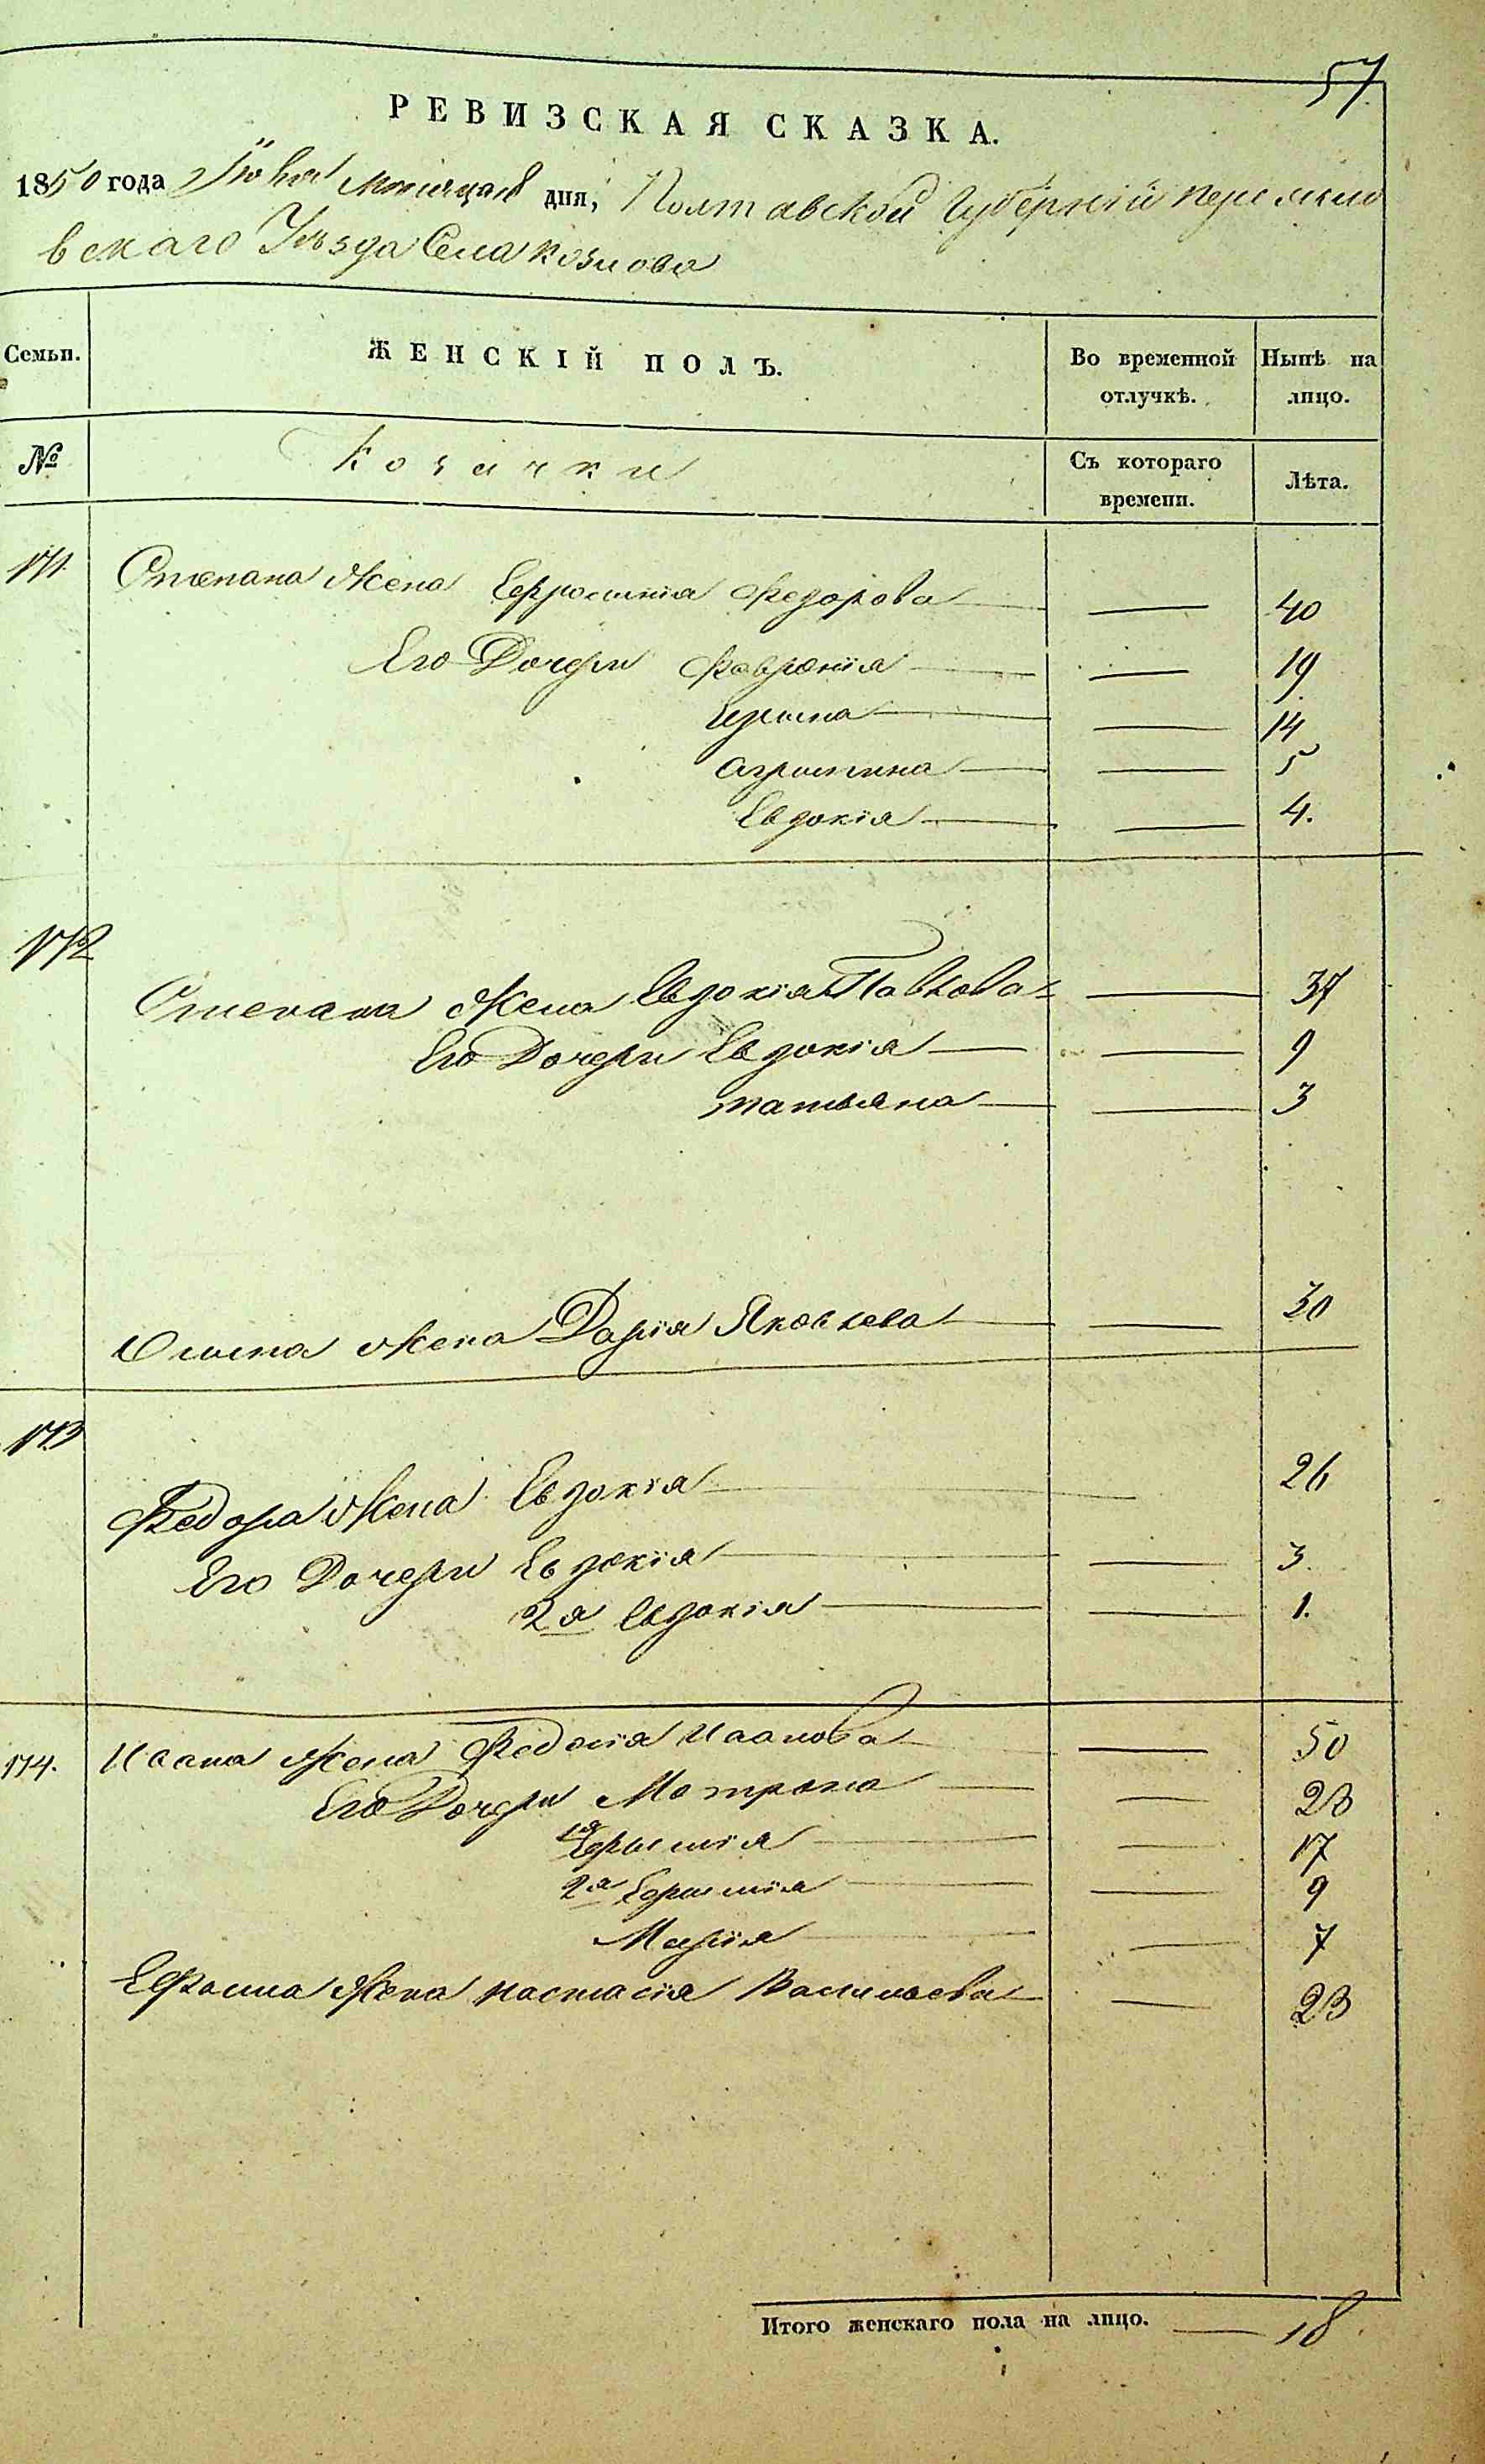 57
РЕВИЗСКАЯ СКАЗКА.
1850 года Іюня месяца дня, Полтавской Губерніи Переясло
вскаго Уѣзда Села Козлова
Семьи. ЖЕНСКІЙ ПОЛЪ. Во временной отлучкѣ. Нынѣ на лицо.
№ Козачки Съ котораго времени. Лѣта.
171 Степана Жена Ефросинія Федорова 40
Его Дочери Февронія 19
Ирина 14
Агрипина 5
Евдокія 4.
172
Степана Жена Евдокія Павлова 37
Его Дочери Евдокія 9
татьяна 3
Жена Дарія Яковлева 30
173
Федора Жена Евдокія 26
Его Дочери Евдокія 3.
2я Евдокія 1.
174. Ивана Жена Федосія Иванова 50
Его Дочери Мотрона 23
1я Ефимія 17
2я Ефимія 9
Марія 7
Жена настасія Васильева 23
Итого женскаго пола на лицо. 18